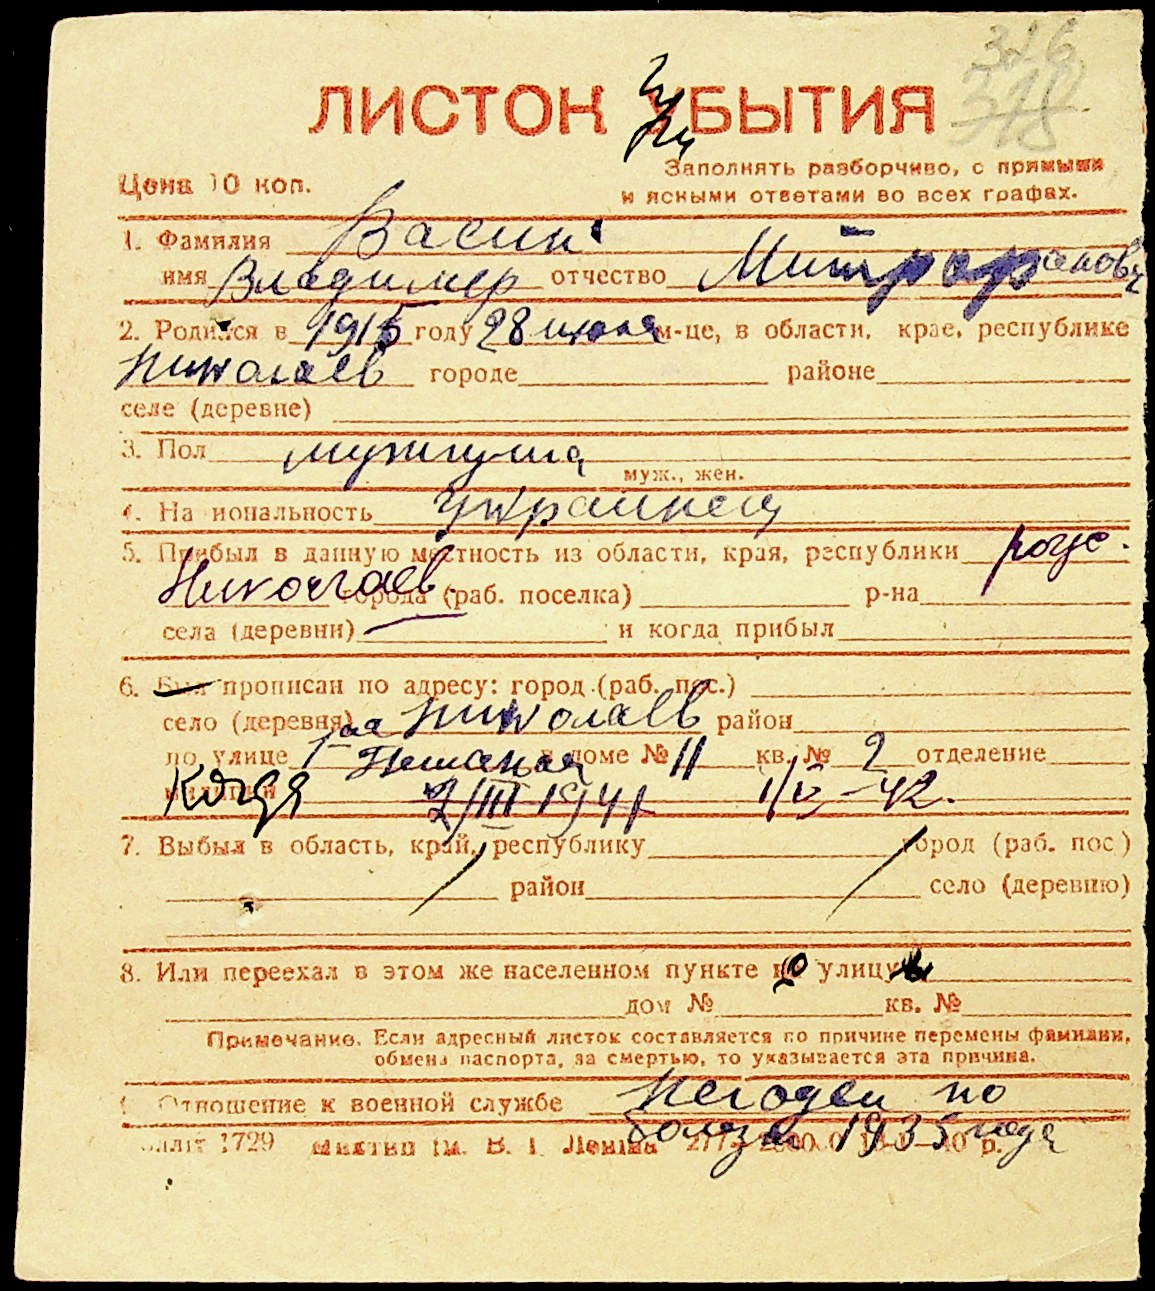 326
318
ЛИСТОК УБЫТИЯ
Цена 10 коп.
Заполнять разборчиво, с прямыми
и ясными ответами во всех графах.
1. Фамилия Васин
имя Владимир отчество Митрофанович
2. Родился в 1915 году 28 июня м-це, в области, крае, республике
Николаев городе районе
селе (деревне)
3. Пол мужчина
муж., жен.
4. Национальность украинец
5. Прибыл в данную местность из области, края, республики
Николаев. города (раб. поселка) р-на
села (деревни) и когда прибыл
6. Был прописан по адресу: город (раб. пос.)
село (деревня) Николаев район
по улице 1-ая Песчаная в доме № 11 кв. № 2 отделение
милиции Когда 2/III 1941 1/V-42.
7. Выбыл в область, край, республику город (раб. пос)
район село (деревню)
8. Или переехал в этом же населенном пункте по улицу
дом № кв. №
Примечание. Если адресный листок составляется по причине перемены фамилии,
обмена паспорта, за смертью, то указывается эта причина.
Отношение к военной службе Негоден по
болезни 1935 года
1729 ім. В. І. Леніна